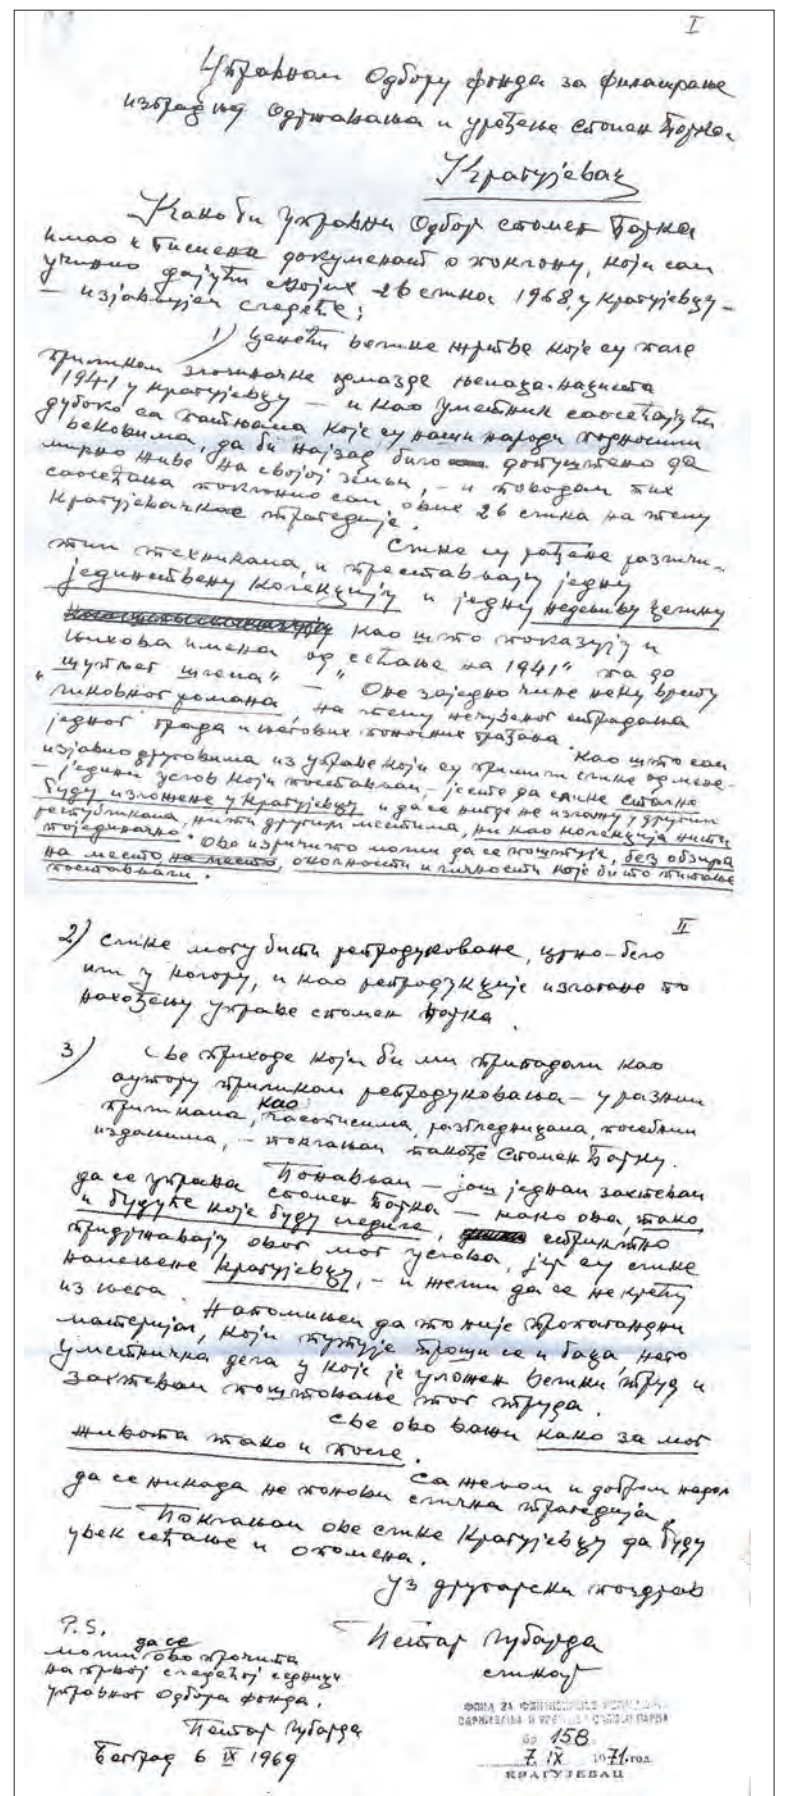 I
Управном Одбору фонда за финасирање
изградњу Одржавања и уређење спомен парка
Крагујевац
Како би управни Одбор спомен парка
имао и писмена документ о поклону, који сам
учинио дајући својих 26 слика 1968, у Крагујевцу –
– изјављујем следеће:
1) Ценећи велике жртве које су пале
приликом злочиначке одмазде њемаца-нациста
1941 у Крагујевцу – и као уметник саосећајући
дубоко са патњама које су наши народи подносили
вековима, да би најзад било допуштено да
мирно живе на својој земљи, – и поводом тих
саосећања поклонио сам ових 26 слика на тему
Крагујевачкае трагедије.
Слике су рађене различи–
тим техникама, и престављају једну
јединствену колекцију и једну недељиву целину
као што показују и
њихова имена од "сећање на 1941" па до
"шупљег шлема" – Оне заједно чине неку врсту
ликовног романа, на тему нечувеног страдања
једног града и његових поносних грађана. Као што сам
изјавио друговима из управе који су примили слике од мене–
– једини услов који постављам, – јесте да слике стално
буду изложене у Крагујевцу и да се нигде не излажу у другим
републикама, нити другим местима, ни као колекција нити
појединачно. Ово изричито молим да се поштује, без обзира
на место, на место, околности и личности које би то питање
постављали.
II
2) слике могу бити репродуковане, црно-бело
или у колору, и као репродукције излагане по
нахођењу управе спомен парка.
3) Све приходе који би ми припадали као
аутору приликом репродуковања – у разним
приликама, као часописима, разгледницама, посебним
издањима, – поклањам такође Спомен Парку.
Понављам – још једном захтевам
да се управа спомен парка – како ова, тако
и будуће које буду следиле, стриктно
придржавају овог мог услова, јер су слике
намењене Крагујевцу, – и желим да се не крећу
из њега.
Напомињем да то није пропагандни
материјал, који путује троши се и баца, него
уметничка дела у које је уложен велики труд и
захтевам поштовање тог труда.
Све ово важи како за мог
живота тако и после.
Са жељом и добром надом
да се никада не понови слична трагедија,
– Поклањам ове слике Крагујевцу да буду
увек сећање и опомена.
Уз другарски поздрав
Петар Лубарда
сликар
P.S.
да се
молим ово прочита
на првој следећој седници
управног Одбора фонда.
Петар Лубарда
Београд 6 IX 1969
ФОНД ЗА
И СПОМЕН ПАРКА
бр 158
7. IX 1971. год.
КРАГУЈЕВАЦ